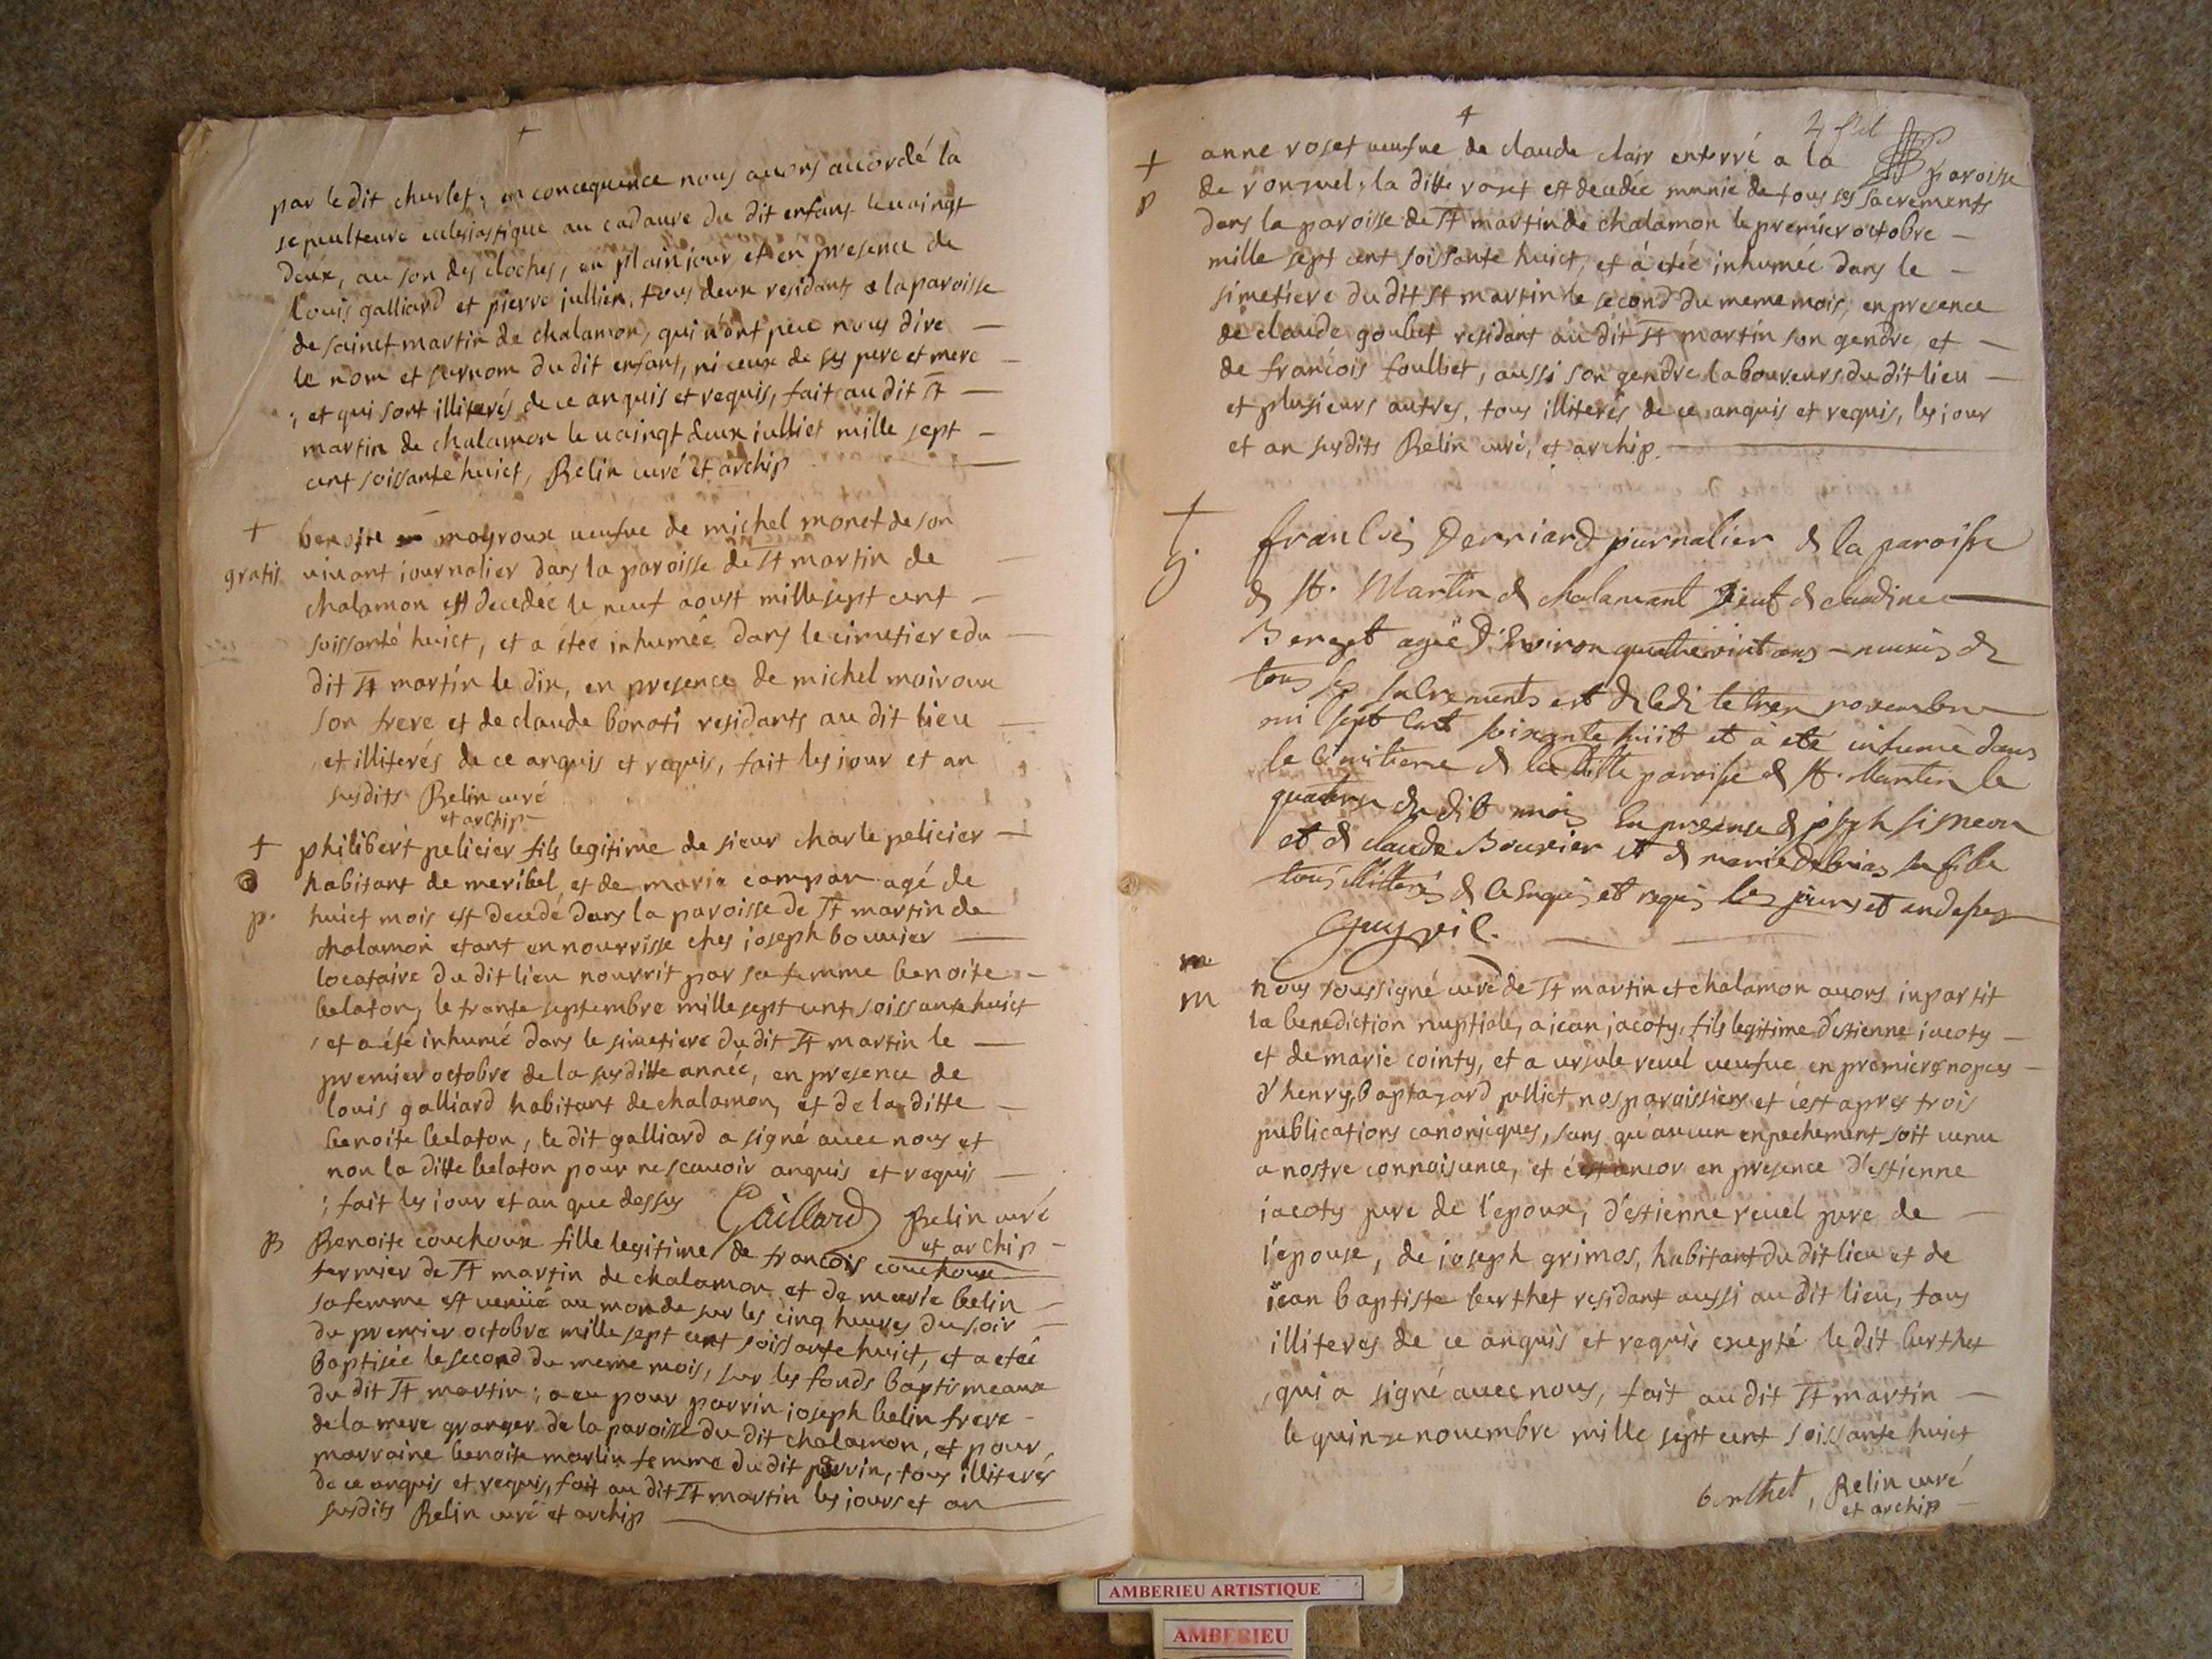 par le dit churlet; en concequence nous auons accordé la
sepeulteure eclesiastique au cadaure du dit enfant le uaingt
deux, au son des cloches, en plain jour et en presence de
louis galliard et pierre jullien, tous deux residants a la paroisse
de sainct martin de chalamon, qui n'ont peu nous dire —
le nom et surnom du dit enfant, ni ceux de ses pere et mere —
; et qui sont illiterés de ce anquis et requis, fait au dit St —
martin de chalamon le uaingt deux julliet mille sept —
cent soissante huict, Belin curé et archip —
+
benoite moyroux ueufue de michel monet de son
gratis uiuant journalier dans la paroisse de St martin de —
chalamon est decedée le neuf aoust mille sept cent —
soissante huict, et a étée inhumée dans le cimetiere du —
dit St martin le dix, en presence de michel moiroux
son frere et de claude bonati residants au dit lieu —
, et illiterés de ce anquis et requis, fait les jour et an
susdits Belin curé
et archip —
+ philibert pelicier fils legitime de sieur charle pelicier —
habitant de meribel, et de marie compan agé de
p. huict mois est decedé dans la paroisse de St martin de
chalamon etant en nourrisse ches joseph bouuier —
locataire du dit lieu nourrit par sa femme benoite —
belaton, le trante septembre mille sept cent soissante huict
, et a été inhumé dans le simetiere du dit St martin le —
premier octobre de la susditte année, en presence de
louis galliard habitant de chalamon, et de la ditte —
benoite belaton, le dit galliard a signé auec nous et
non la ditte belaton pour ne scauoir anquis et requis —
; fait les jour et an que dessus Gaillard Belin curé
et archip —
B Benoite couchoux fille legitime de francois couchoux
fermier de St martin de chalamon et de marie belin —
sa femme est uenüe au monde sur les cinq heures du soir —
du premier octobre mille sept cent soissante huict, et a etée
baptisée le second du meme mois, sur les fonds baptismeaux
du dit St martin; a eu pour parrin joseph belin frere —
de la mere granger de la paroisse du dit chalamon, et pour
marraine benoite marlin femme du dit parrin, tous illiterés
de ce anquis et requis, fait au dit St martin les jours et an —
susdits Belin curé et archip —
+
+ anne roset ueufue de claude clair enterré a la paroisse
p de ronzuel, la ditte roset est decedée munie de tous ses sacrements
dans la paroisse de St martin de chalamon le premier octobre —
mille sept cent soissante huict, et a étée inhumée dans le —
simetiere du dit St martin le second du meme mois, en presence
de claude goulet residant au dit St martin son gendre, et —
de francois foulliet, aussi son gendre laboureurs du dit lieu —
et plusieurs autres, tous illiterés de ce anquis et requis, les jour
et an susdits Belin curé, et archip. —
+
francois Perriard journalier de la paroisse
de St. Martin de chalamont Veuf de claudine —
Berget agée d'Environ quatrevint ans — munis de
tous ses sacrements est decedé le trois novembre
mil sept cent soixante huit et à eté inhumé dans
le cimitiere de la ditte paroisse de St. Martin le
quatre du dit mois en presence de joseph simeon
et de claude Bouvier et de marie debrias sa fille
tous illitterés de ce enquis et requis les jours et an dessus
Guy vic.
m
m nous soussigné curé de St martin et chalamon auons inpartit
la benediction nuptiale, a jean jacoty, fils legitime d'estienne jacoty —
et de marie cointy, et a ursule reuel ueufue en premieres nopces —
d'henry baptazard julliet nos paroissiens et c'est apres trois
publications canonicques, sans qu'aucun enpechement soit uenu
a nostre connoisance, et c'est ancor en presence d'estienne
jacoty pere de l'epoux, d'estienne reuel pere de —
l'epouse, de joseph grimos, habitant du dit lieu et de
jean baptiste berthet residant aussi au dit lieu, tous
illiteres de ce anquis et requis exepté le dit berthet
, qui a signé auec nous, fait au dit St martin —
le quinze nouembre mille sept cent soissante huict
berthet, Belin curé
et archip —
AMBERIEU ARTISTIQUE
AMBERIEU